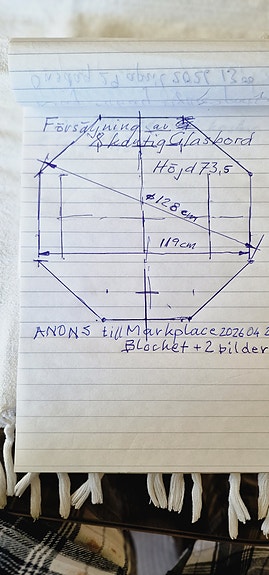 Onsdag 29 april 2026 13.00
Försäljning av
8 kantig Glasbord
Höjd 73,5
ø 128 cm
119 cm
ANONS till Markplace 2026 04 2
Blocket + 2 bilder